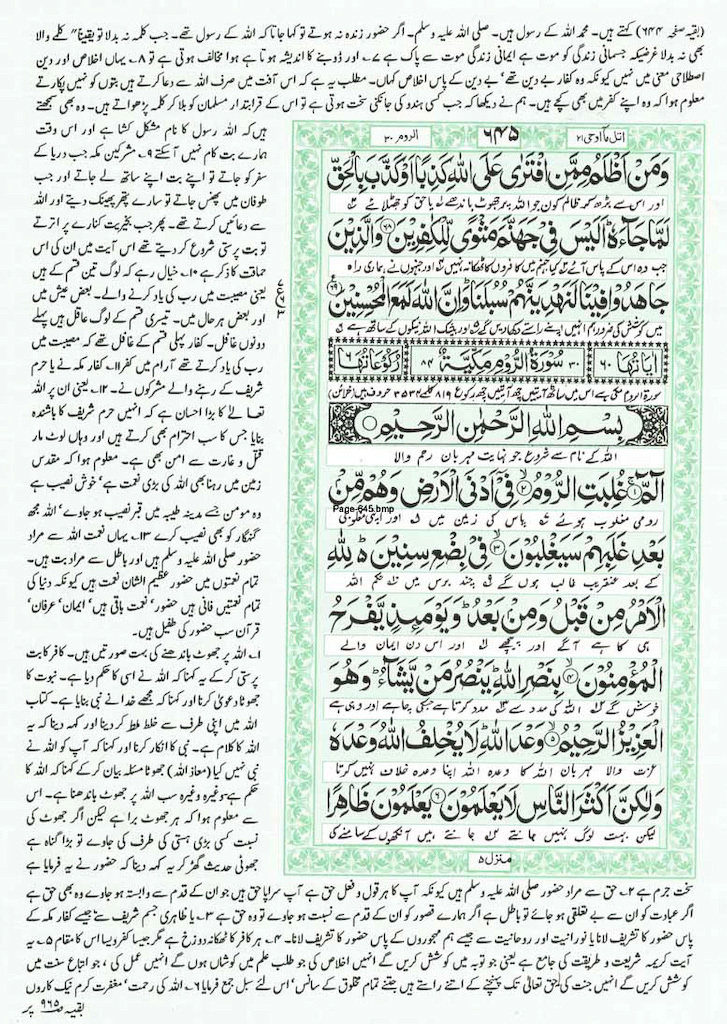 (بقیہ صفحہ ۶۴۴) کہتے ہیں۔ محمد اللہ کے رسول ہیں۔ صلی اللہ علیہ وسلم۔ اگر حضور زندہ نہ ہوتے تو کہا جاتا کہ اللہ کے رسول تھے۔ جب کلمہ نہ بدلا تو یقیناً کلمے والا
بھی نہ بدلا غرضیکہ جسمانی زندگی کو موت ہے ایمانی زندگی موت سے پاک ہے ۷۔ اور ڈوبنے کا اندیشہ ہوتا ہے ہوا مخالف ہوتی ہے تو ۸۔ یہاں اخلاص اور دین
اصطلاحی معنی میں نہیں کیونکہ وہ کفار بے دین تھے، بے دین کے پاس اخلاص کہاں۔ مطلب یہ ہے کہ اس آفت میں صرف اللہ سے دعا کرتے ہیں بتوں کو نہیں پکارتے
معلوم ہوا کہ وہ اپنے کفر میں بھی کچے ہیں۔ ہم نے دیکھا کہ جب کسی ہندو کی جانکنی سخت ہوتی ہے تو اس کے قرابتدار مسلمان کو بلا کر کلمہ پڑھواتے ہیں۔ وہ بھی سمجھتے
ہیں کہ اللہ رسول کا نام مشکل کشا ہے اور اس وقت
ہمارے بت کام نہیں آ سکتے ۹۔ مشرکین مکہ جب دریا کے
سفر کو جاتے تو اپنے بت اپنے ساتھ لے جاتے اور جب
طوفان میں پھنس جاتے تو سارے پتھر پھینک دیتے اور اللہ
سے دعائیں کرتے تھے۔ پھر جب بخیریت کنارے پر اترتے
تو بت پرستی شروع کر دیتے تھے اس آیت میں ان کی اس
حماقت کا ذکر ہے ۱۰۔ خیال رہے کہ لوگ تین قسم کے ہیں
یعنی مصیبت میں رب کی یاد کرنے والے۔ بعض عیش میں
اور بعض ہر حال میں۔ تیسری قسم کے لوگ عاقل ہیں پہلے
دونوں غافل۔ کفار پہلی قسم کے غافل تھے کہ مصیبت میں
رب کی یاد کرتے تھے آرام میں کفر ۱۱۔ کفار مکہ نے یا حرم
شریف کے رہنے والے مشرکوں نے۔ ۱۲۔ یعنی ان پر اللہ
تعالٰی کا بڑا احسان ہے کہ انہیں حرم شریف کا باشندہ
بنایا جس کا سب احترام بھی کرتے ہیں اور وہاں لوٹ مار
قتل و غارت سے امن بھی ہے۔ معلوم ہوا کہ مقدس
زمین میں رہنا بھی اللہ کی بڑی نعمت ہے، خوش نصیب ہے
وہ مومن جسے مدینہ طیبہ میں قبر نصیب ہو جاوے، اللہ مجھ
گنہگار کو بھی نصیب کرے ۱۳۔ یہاں نعمت اللہ سے مراد
حضور صلی اللہ علیہ وسلم ہیں اور باطل سے مراد بت ہیں۔
تمام نعمتوں میں حضور عظیم الشان نعمت ہیں کیونکہ دنیا کی
تمام نعمتیں فانی ہیں حضور، نعمت باقی ہیں، ایمان، عرفان،
قرآن سب حضور کی طفیل ہیں۔
۱۔ اللہ پر جھوٹ باندھنے کی بہت صورتیں ہیں۔ کافر کا بت
پرستی کر کے یہ کہنا کہ اللہ نے اسی کا حکم دیا ہے۔ نبوت کا
جھوٹا دعوٰی کرنا اور کہنا کہ مجھے خدا نے نبی بنایا ہے۔ کتاب
اللہ میں اپنی طرف سے خلط ملط کر دینا اور کہہ دینا کہ یہ
اللہ کا کلام ہے۔ نبی کا انکار کرنا اور کہنا کہ آپ کو اللہ نے
نبی نہیں کیا (معاذ اللہ) جھوٹا مسئلہ بیان کر کے کہنا کہ اللہ کا
حکم ہے وغیرہ وغیرہ سب اللہ پر جھوٹ باندھنا ہے۔ اس
سے معلوم ہوا کہ ہر جھوٹ برا ہے لیکن اگر جھوٹ کی
نسبت کسی بڑی ہستی کی طرف کی جاوے تو بڑا گناہ ہے
جھوٹی حدیث گھڑ کر یہ کہہ دینا کہ حضور نے یہ فرمایا ہے
اتل مآ اوحی ۲۱
۶۴۵
الروم ۳۰
وَمَنْ اَظْلَمُ مِمَّنِ افْتَرٰى عَلَى اللّٰهِ كَذِبًا اَوْ كَذَّبَ بِالْحَقِّ
اور اس سے بڑھ کر ظالم کون جو اللہ پر جھوٹ باندھے یا حق کو جھٹلائے
لَمَّا جَآءَهٗ اَلَيْسَ فِيْ جَهَنَّمَ مَثْوًى لِّلْكٰفِرِيْنَ ۶۸ وَالَّذِيْنَ
جب وہ اس کے پاس آئے کیا جہنم میں کافروں کا ٹھکانہ نہیں اور جنہوں نے ہماری راہ
جَاهَدُوْا فِيْنَا لَنَهْدِيَنَّهُمْ سُبُلَنَا وَاِنَّ اللّٰهَ لَمَعَ الْمُحْسِنِيْنَ ۶۹
میں کوشش کی ضرور ہم انہیں اپنے راستے دکھا دیں گے اور بیشک اللہ نیکوں کے ساتھ ہے
اٰيَاتُهَا ۶۰ ۳۰ سُوْرَةُ الرُّوْمِ مَكِّيَّةٌ ۸۴ رُكُوْعَاتُهَا ۶
سورۃ الروم مکی ہے اس میں ساٹھ آیتیں چھ رکوع ۸۱۹ کلمے ۳۵۳۴ حروف ہیں (خزائن)
بِسْمِ اللّٰهِ الرَّحْمٰنِ الرَّحِيْمِ
اللہ کے نام سے شروع جو نہایت مہربان رحم والا
الٓمّٓ ۱ غُلِبَتِ الرُّوْمُ ۲ فِيْٓ اَدْنَى الْاَرْضِ وَهُمْ مِّنْ
Page-645.bmp
رومی مغلوب ہوئے پاس کی زمین میں اور اپنی مغلوبی
بَعْدِ غَلَبِهِمْ سَيَغْلِبُوْنَ ۳ فِيْ بِضْعِ سِنِيْنَ ؕ لِلّٰهِ
کے بعد عنقریب غالب ہوں گے چند برس میں حکم اللہ
الْاَمْرُ مِنْ قَبْلُ وَمِنْ بَعْدُ ؕ وَيَوْمَىِٕذٍ يَّفْرَحُ
ہی کا ہے آگے اور پیچھے اور اس دن ایمان والے
الْمُؤْمِنُوْنَ ۴ بِنَصْرِ اللّٰهِ يَنْصُرُ مَنْ يَّشَآءُ ؕ وَهُوَ
خوش ہوں گے اللہ کی مدد سے مدد کرتا ہے جسکی چاہے اور وہی ہے
الْعَزِيْزُ الرَّحِيْمُ ۵ وَعْدَ اللّٰهِ لَا يُخْلِفُ اللّٰهُ وَعْدَهٗ
عزت والا مہربان اللہ کا وعدہ اللہ اپنا وعدہ خلاف نہیں کرتا
وَلٰكِنَّ اَكْثَرَ النَّاسِ لَا يَعْلَمُوْنَ ۶ يَعْلَمُوْنَ ظَاهِرًا
لیکن بہت لوگ نہیں جانتے جانتے ہیں آنکھوں کے سامنے کی
منزل ۵
سخت جرم ہے ۲۔ حق سے مراد حضور صلی اللہ علیہ وسلم ہیں کیونکہ آپ کا ہر قول و فعل حق ہے آپ سراپا حق ہیں جو ان کے قدم سے وابستہ ہو جاوے وہ بھی حق ہے
اگر عبادت کو ان سے بے تعلقی ہو جائے تو باطل ہے اگر ہمارے قصور کو ان کے قدم سے نسبت ہو جاوے تو وہ حق ہے ۳۔ یا ظاہری جسم شریف سے جیسے کفار مکہ کے
پاس حضور کا تشریف لانا یا نورانیت اور روحانیت سے جیسے ہم مہجوروں کے پاس حضور کا تشریف لانا۔ ۴۔ ہر کافر کا ٹھکانہ دوزخ ہے مگر جیسا کفر ویسا اس کا مقام ۵۔ یہ
آیت کریمہ شریعت و طریقت کی جامع ہے یعنی جو توبہ میں کوشش کریں گے انہیں اخلاص کی جو طلب علم میں کوشاں ہوں گے انہیں عمل کی، جو اتباع سنت میں
کوشش کریں گے انہیں جنت کی حق تعالٰی تک پہنچنے کے اتنے راستے ہیں جتنے تمام مخلوق کے سانس، اس لئے سبل جمع فرمایا ۶۔ اللہ کی رحمت، مغفرت کرم نیک کاروں
بقیہ صفحہ ۹۶۵ پر